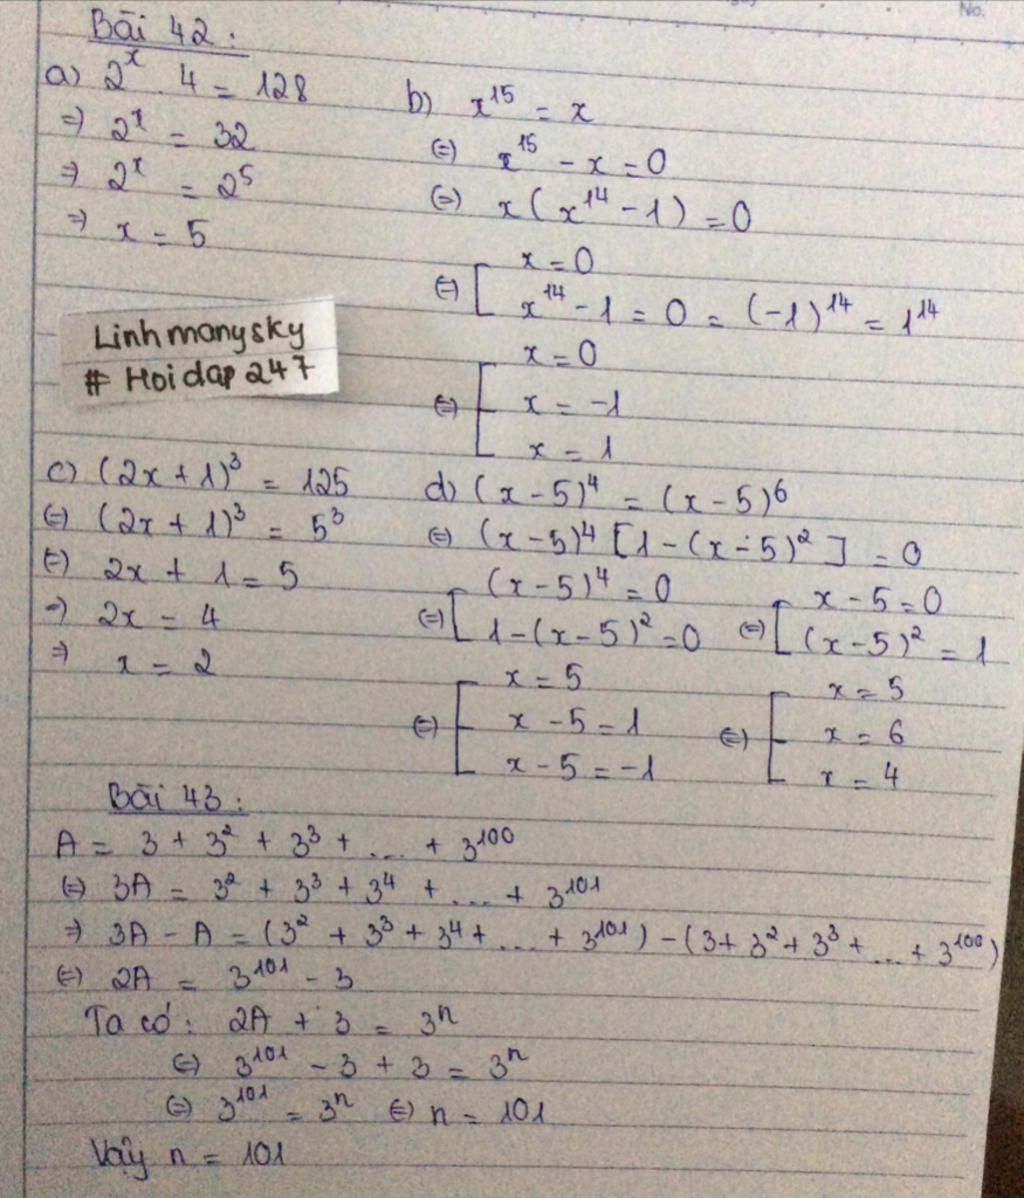 No.
Bài 42:
a) 2^x . 4 = 128
=) 2^x = 32
=) 2^x = 2^5
=) x = 5
b) x^15 = x
(=) x^15 - x = 0
(=) x(x^14 - 1) = 0
(=) [ x = 0
x^14 - 1 = 0 = (-1)^14 = 1^14
(=) [ x = 0
x = -1
x = 1
Linhmonysky
# Hoidap247
c) (2x + 1)^3 = 125
(=) (2x + 1)^3 = 5^3
(=) 2x + 1 = 5
=) 2x = 4
=) x = 2
d) (x - 5)^4 = (x - 5)^6
(=) (x - 5)^4 [1 - (x - 5)^2] = 0
(=) [ (x - 5)^4 = 0
1 - (x - 5)^2 = 0
(=) [ x - 5 = 0
(x - 5)^2 = 1
(=) [ x = 5
x - 5 = 1
x - 5 = -1
(=) [ x = 5
x = 6
x = 4
Bài 43:
A = 3 + 3^2 + 3^3 + .... + 3^100
(=) 3A = 3^2 + 3^3 + 3^4 + .... + 3^101
=) 3A - A = (3^2 + 3^3 + 3^4 + ... + 3^101) - (3 + 3^2 + 3^3 + ... + 3^100)
(=) 2A = 3^101 - 3
Ta có: 2A + 3 = 3^n
(=) 3^101 - 3 + 3 = 3^n
(=) 3^101 = 3^n (=) n = 101
Vậy n = 101